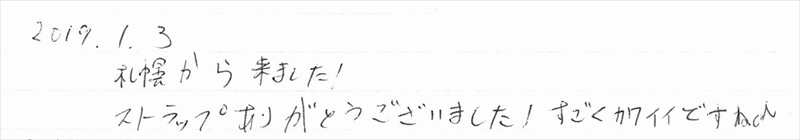 2019.1.3
札幌から来ました!
ストラップありがとうございました!すごくカワイイですね